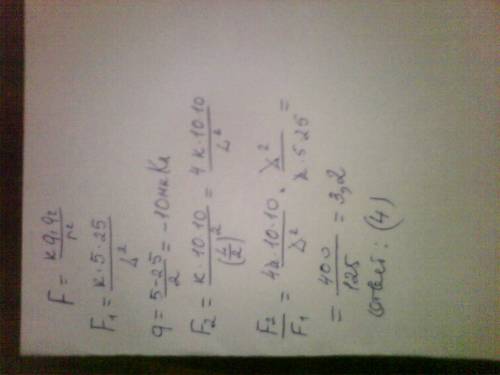 F = kq₁q₂/r²
F₁ = к·5·25/L²
q = 5-25/2 = -10мкКл
F₂ = к·10·10/(L/2)² = 4к·10·10/L²
F₂/F₁ = 4к·10·10/L² · L²/к·5·25 =
= 400/125 = 3,2
Ответ: (4)